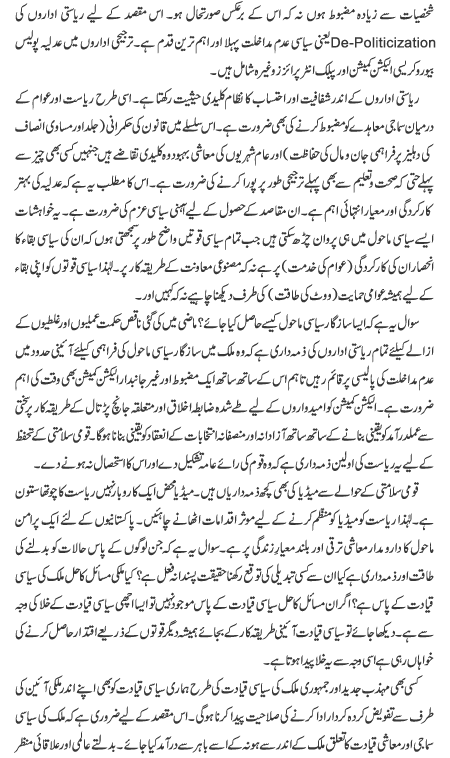 شخصیات سے زیادہ مضبوط ہوں نہ کہ اس کے برعکس صورتحال ہو۔ اس مقصد کے لیے ریاستی اداروں کی
De-Politicization یعنی سیاسی عدم مداخلت پہلا اور اہم ترین قدم ہے۔ ترجیحی اداروں میں عدلیہ پولیس
بیوروکریسی الیکشن کمیشن اور پبلک انٹر پرائزز وغیرہ شامل ہیں۔
ریاستی اداروں کے اندر شفافیت اور احتساب کا نظام کلیدی حیثیت رکھتا ہے۔ اسی طرح ریاست اور عوام کے
درمیان سماجی معاہدے کو مضبوط کرنے کی بھی ضرورت ہے۔ اس سلسلے میں قانون کی حکمرانی (جلد اور مساوی انصاف
کی دہلیز پر فراہمی جان و مال کی حفاظت) اور عام شہریوں کی معاشی بہبود وہ کلیدی تقاضے ہیں جنہیں کسی بھی چیز سے
پہلے حتیٰ کہ صحت و تعلیم سے بھی پہلے ترجیحی طور پر پورا کرنے کی ضرورت ہے۔ اس کا مطلب یہ ہے کہ عدلیہ کی بہتر
کارکردگی اور معیار انتہائی اہم ہے۔ ان مقاصد کے حصول کے لیے آہنی سیاسی عزم کی ضرورت ہے۔ یہ خواہشات
ایسے سیاسی ماحول میں ہی پروان چڑھ سکتی ہیں جب تمام سیاسی قوتیں واضح طور پر سمجھتی ہوں کہ ان کی سیاسی بقاء کا
انحصار ان کی کارکردگی (عوام کی خدمت) پر ہے نہ کہ مصنوعی معاونت کے طریقہ کار پر۔ لہٰذا سیاسی قوتوں کو اپنی بقاء
کے لیے ہمیشہ عوامی حمایت (ووٹ کی طاقت) کی طرف دیکھنا چاہیے نہ کہ کہیں اور۔
سوال یہ ہے کہ ایسا سازگار سیاسی ماحول کیسے حاصل کیا جائے؟ ماضی میں کی گئی ناقص حکمت عملیوں اور غلطیوں کے
ازالے کیلئے تمام ریاستی اداروں کی ذمہ داری ہے کہ وہ ملک میں سازگار سیاسی ماحول کی فراہمی کیلئے آئینی حدود میں
عدم مداخلت کی پالیسی پر قائم رہیں تاہم اس کے ساتھ ساتھ ایک مضبوط اور غیر جانبدار الیکشن کمیشن بھی وقت کی اہم
ضرورت ہے۔ الیکشن کمیشن کو امیدواروں کے لیے طے شدہ ضابطہ اخلاق اور متعلقہ جانچ پڑتال کے طریقہ کار پر سختی
سے عملدرآمد کو یقینی بنانے کے ساتھ ساتھ آزادانہ اور منصفانہ انتخابات کے انعقاد کو یقینی بنانا ہو گا۔ قومی سلامتی کے تحفظ
کے لیے یہ ریاست کی اولین ذمہ داری ہے کہ وہ قوم کی رائے عامہ تشکیل دے اور اس کا استحصال نہ ہونے دے۔
قومی سلامتی کے حوالے سے میڈیا کی بھی کچھ ذمہ داریاں ہیں۔ میڈیا محض ایک کاروبار نہیں ریاست کا چوتھا ستون
ہے۔ لہٰذا ریاست کو میڈیا کو منظم کرنے کے لیے موثر اقدامات اٹھانے چاہئیں۔ پاکستانیوں کے لئے ایک پر امن
ماحول کا دارومدار معاشی ترقی اور بلند معیارِ زندگی پر ہے۔ سوال یہ ہے کہ جن لوگوں کے پاس حالات کو بدلنے کی
طاقت اور ذمہ داری ہے کیا ان سے کسی تبدیلی کی توقع رکھنا حقیقت پسندانہ فعل ہے؟ کیا ملکی مسائل کا حل ملک کی سیاسی
قیادت کے پاس ہے؟ اگر ان مسائل کا حل سیاسی قیادت کے پاس موجود نہیں تو ایسا اچھی سیاسی قیادت کے خلا کی وجہ
سے ہے۔ دیکھا جائے تو سیاسی قیادت آئینی طریقہ کار کے بجائے ہمیشہ دیگر قوتوں کے ذریعے اقتدار حاصل کرنے کی
خواہاں رہی ہے اسی وجہ سے یہ خلا پیدا ہوتا ہے۔
کسی بھی مہذب جدید اور جمہوری ملک کی سیاسی قیادت کی طرح ہماری سیاسی قیادت کو بھی اپنے اندر ملکی آئین کی
طرف سے تفویض کردہ کردار ادا کرنے کی صلاحیت پیدا کرنا ہو گی۔ اس مقصد کے لیے ضروری ہے کہ ملک کی سیاسی
سماجی اور معاشی قیادت کا تعلق ملک کے اندر سے ہو نہ کے اسے باہر سے درآمد کیا جائے۔ بدلتے عالمی اور علاقائی منظر